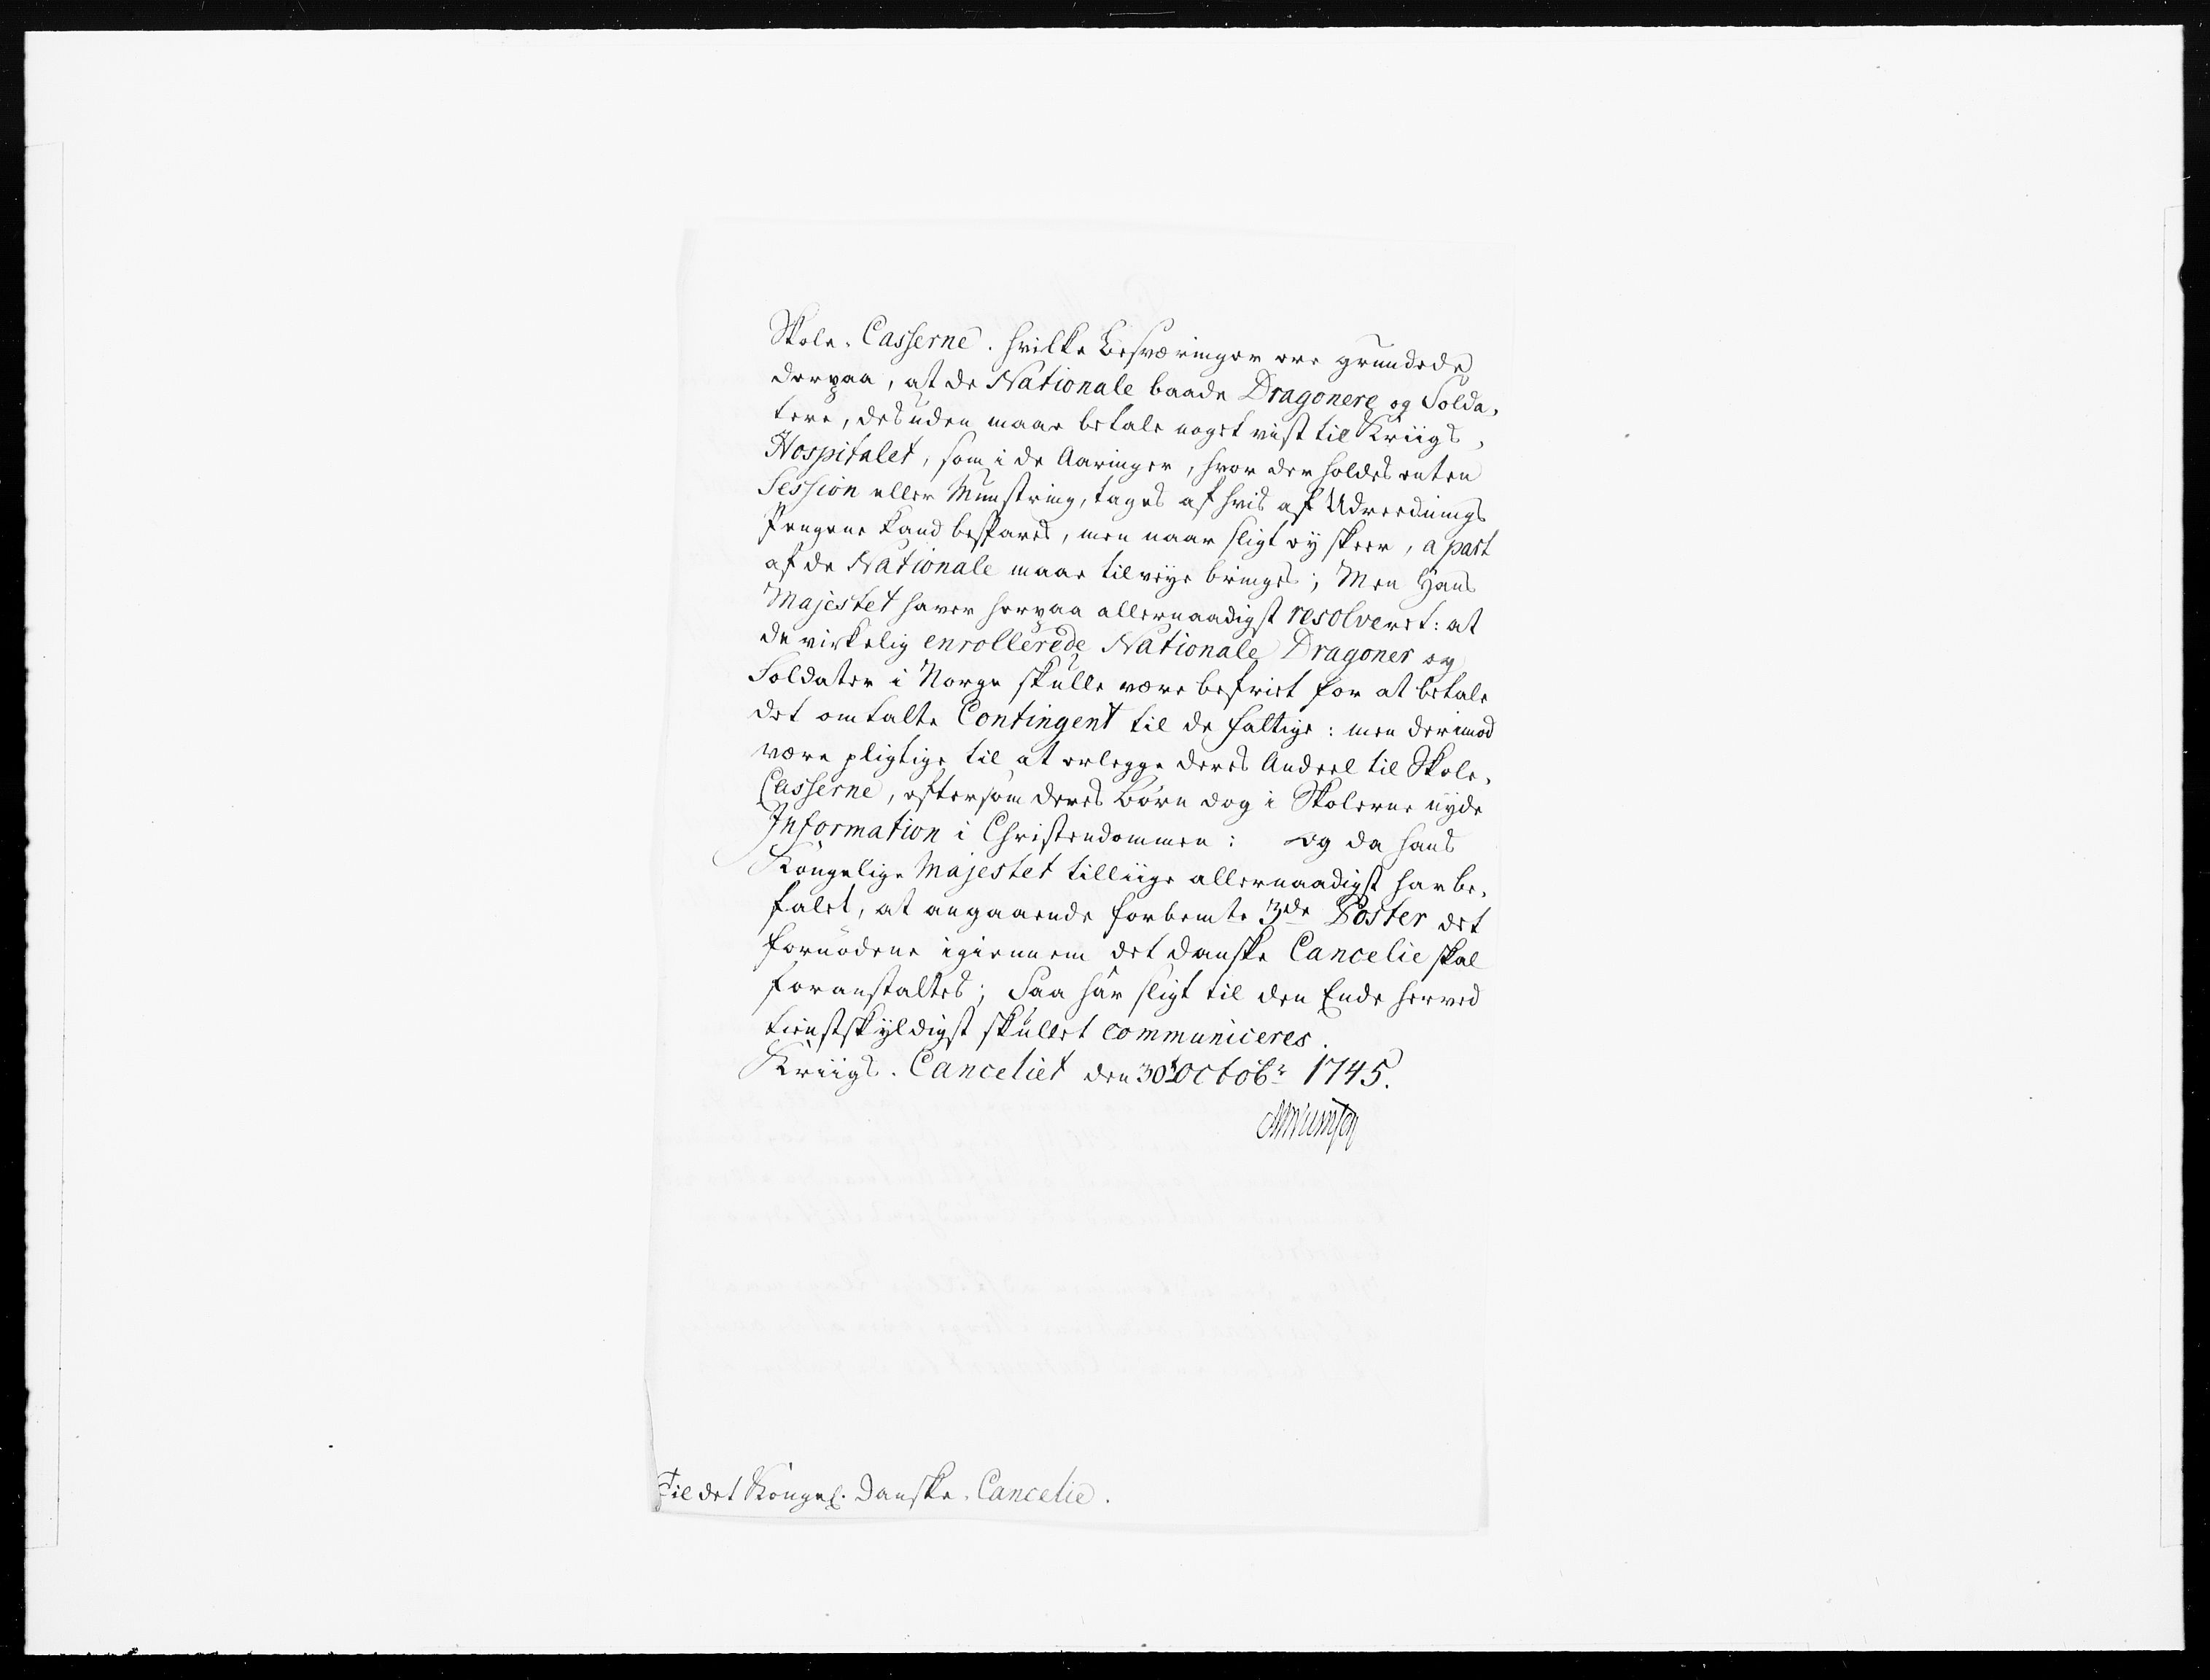 Skole-Casserne. hvilke Besværinger ere grundede
derpaa, at de Nationale baade Dragonere og Solda-
tere, desuden maae betale noget vist til Kriigs-
Hospitalet, som i de Aaringer, hvor der holdes enten
Session eller Munstring, tages af hvis af Udreednings
Pengene kand bespares, men naar sligt ey skeer, apart
af de Nationale maae tilveye bringes; Men Hans
Majestet haver herpaa allernaadigst resolveret: at
de virkelig enrollerede Nationale Dragoner og
Soldater i Norge skulle være befriet for at betale
det omtalte Contingent til de fattige: men derimod
være pligtige til at erlegge deres Andeel til Skole-
Casserne, eftersom deres Børn dog i Skolerne nyde
Information i Christendommen: og da hans
Kongelige Majestet tilliige allernaadigst har be-
falet, at angaaende forbemte 3de Poster det
fornödene igiennem det danske Cancelie skal
foranstaltes; Saa har sligt til den Ende herved
tienstskyldigst skullet communiceres.
Kriigs-Canceliet den 30t Octobr 1745.
Til det Kongel. Danske Cancelie.